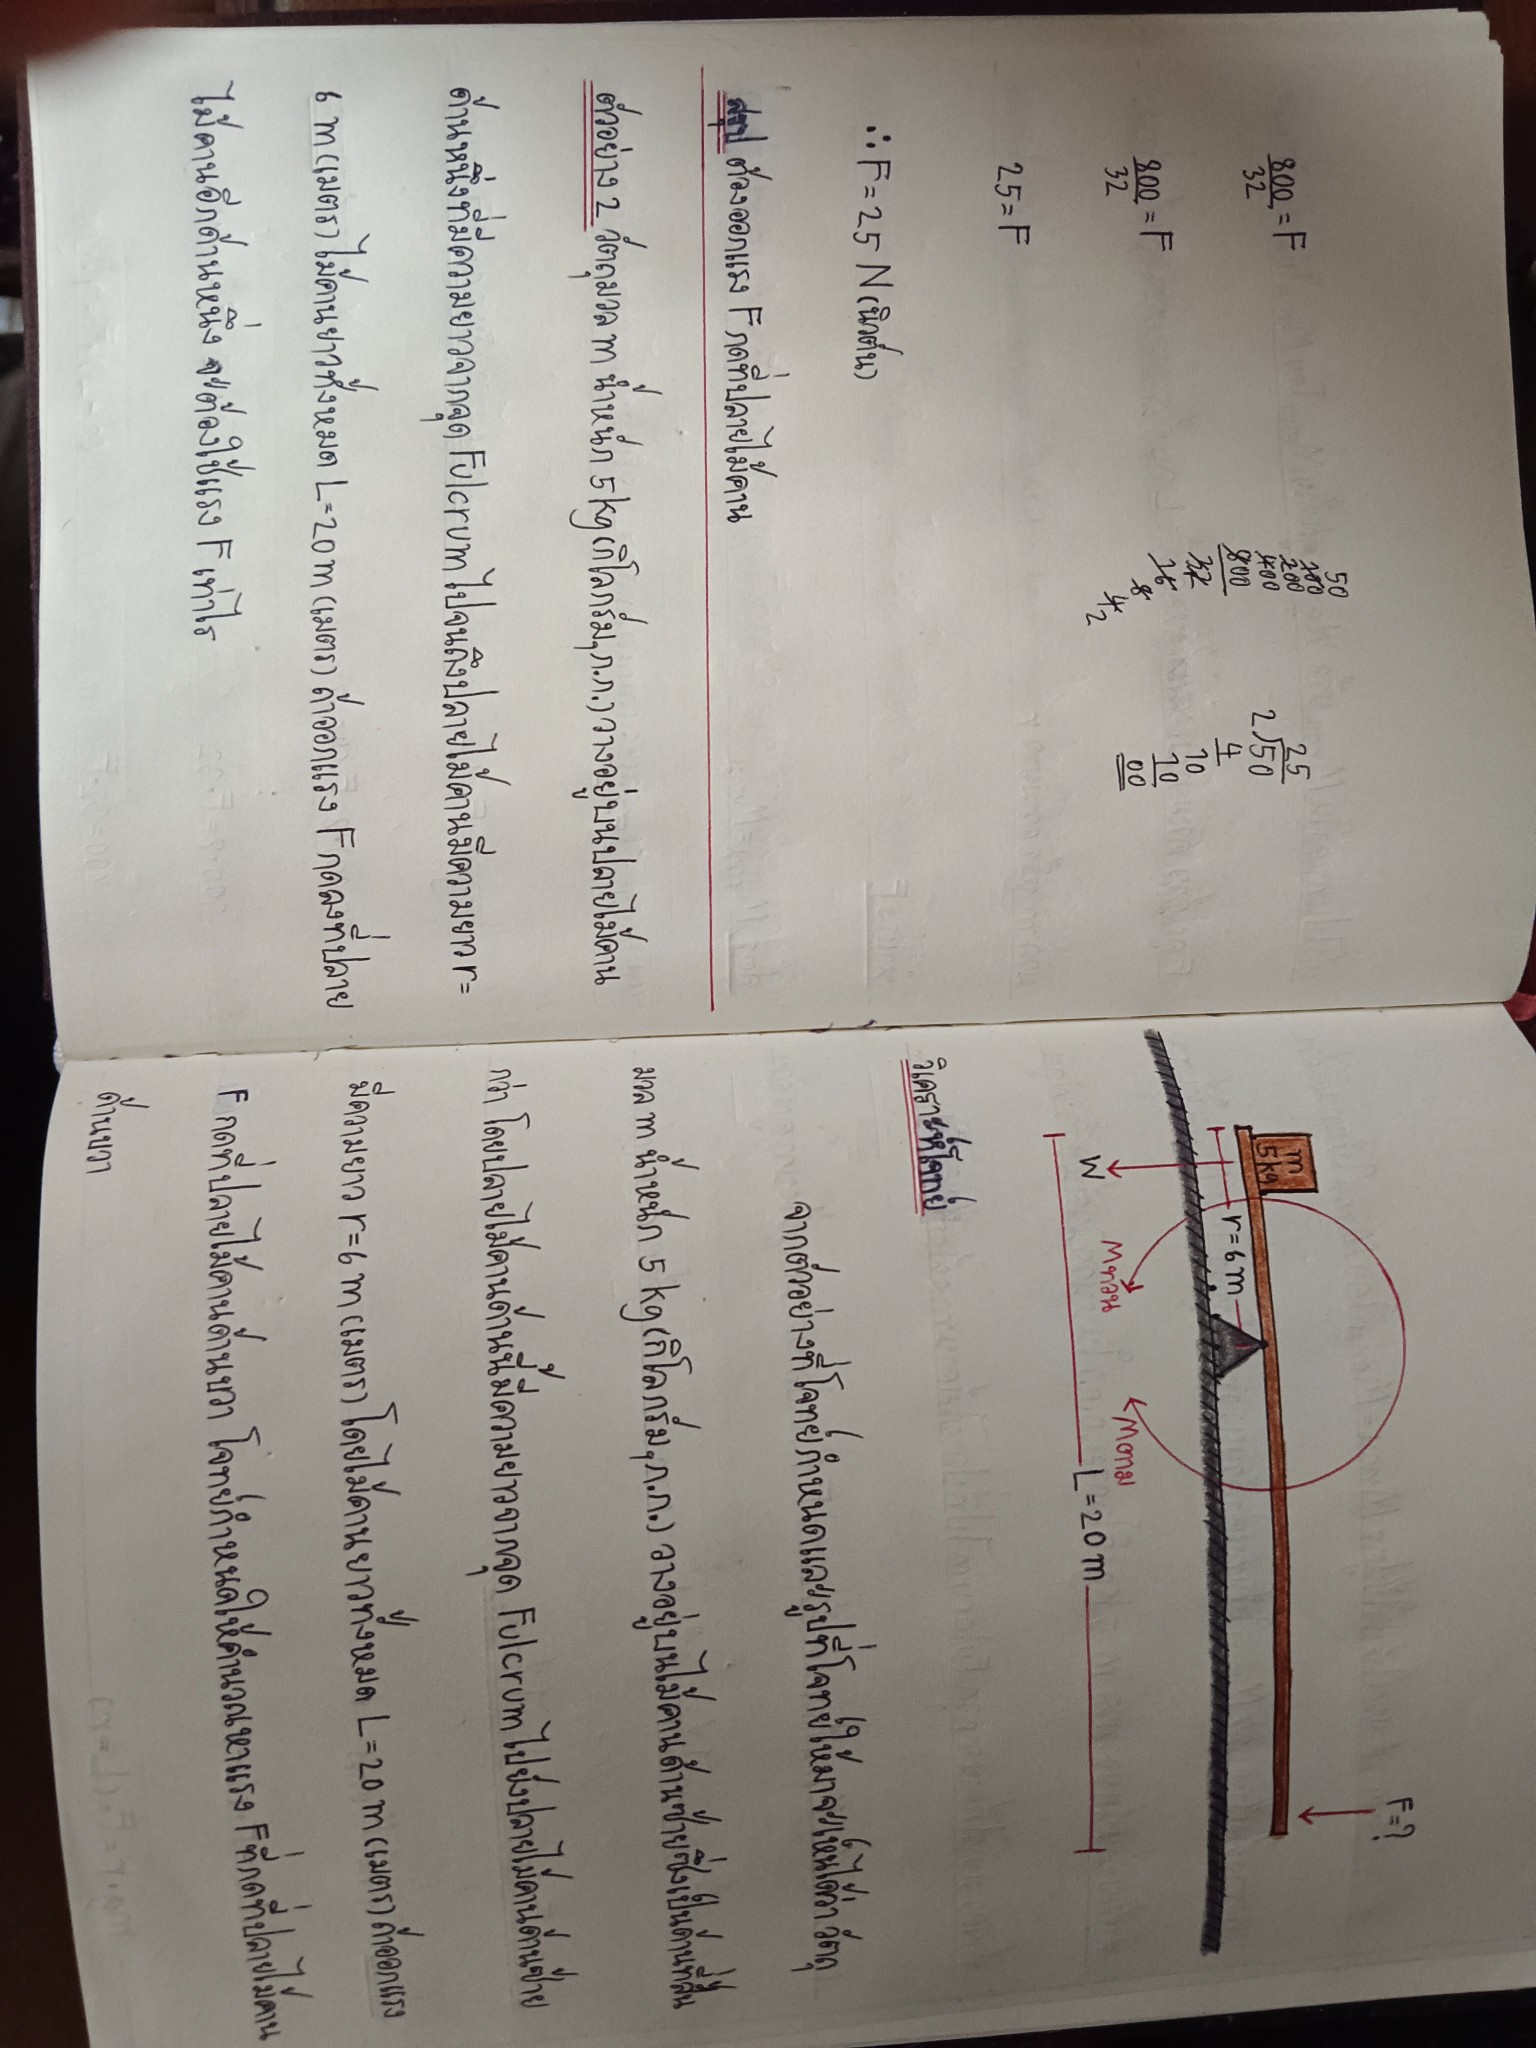 800/32 = F
800/32 = F
25 = F
∴ F = 25 N (นิวตัน)
50
100
200
400
800
32
16
8
4
2
25
2)50
4
10
10
00
สรุป ต้องออกแรง F กดที่ปลายไม้คาน
ตัวอย่าง 2 วัตถุมวล m น้ำหนัก 5 kg (กิโลกรัม, ก.ก.) วางอยู่บนปลายไม้คาน
ด้านหนึ่งที่มีความยาวจากจุด Fulcrum ไปจนถึงปลายไม้คานมีความยาว r =
6 m (เมตร) ไม้คานยาวทั้งหมด L = 20 m (เมตร) ถ้าออกแรง F กดลงที่ปลาย
ไม้คานอีกด้านหนึ่ง จะต้องใช้แรง F เท่าไร
F = ?
m
5 kg
r = 6 m
W
Mทวน
Mตาม
L = 20 m
วิเคราะห์โจทย์
จากตัวอย่างที่โจทย์กำหนดและรูปที่โจทย์ให้มาจะเห็นได้ว่า วัตถุ
มวล m น้ำหนัก 5 kg (กิโลกรัม, ก.ก.) วางอยู่บนไม้คานด้านซ้ายซึ่งเป็นด้านที่สั้น
กว่า โดยปลายไม้คานด้านนี้มีความยาวจากจุด Fulcrum ไปยังปลายไม้คานด้านซ้าย
มีความยาว r = 6 m (เมตร) โดยไม้คานยาวทั้งหมด L = 20 m (เมตร) ถ้าออกแรง
F กดที่ปลายไม้คานด้านขวา โจทย์กำหนดให้คำนวณหาแรง F ที่กดที่ปลายไม้คาน
ด้านขวา